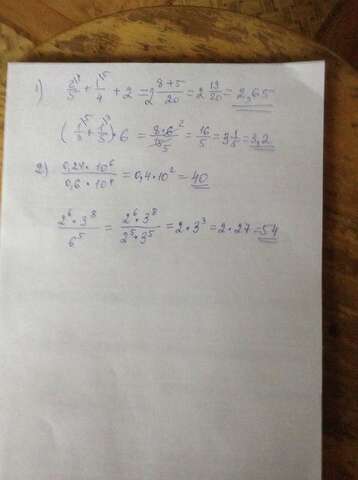 1) 2/5 + 1/4 + 2 = 2 8+5/20 = 2 13/20 = 2,65
(1/3 + 1/5) · 6 = 8·6/15 = 16/5 = 3 1/5 = 3,2
2) 0,24 · 10⁶ / 0,6 · 10⁴ = 0,4 · 10² = 40
2⁶ · 3⁸ / 6⁵ = 2⁶ · 3⁸ / 2⁵ · 3⁵ = 2 · 3³ = 2 · 27 = 54